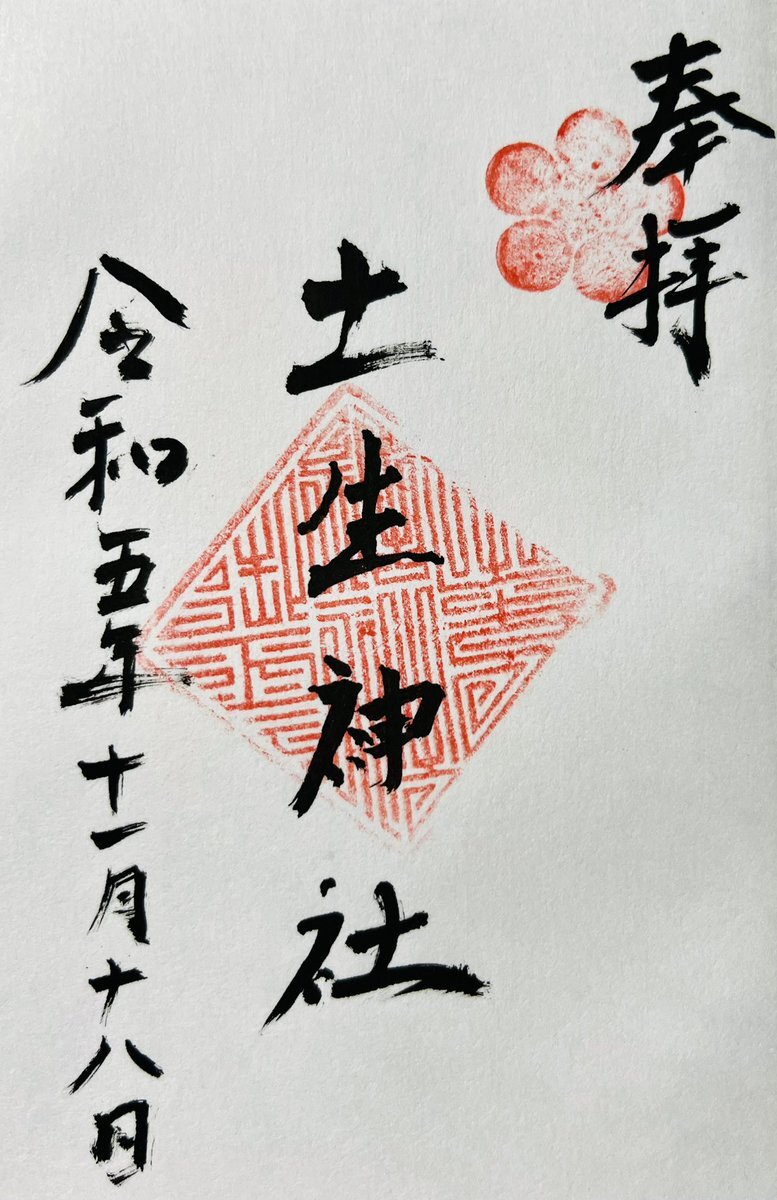 奉拝
土生神社
令和五年十一月十八日